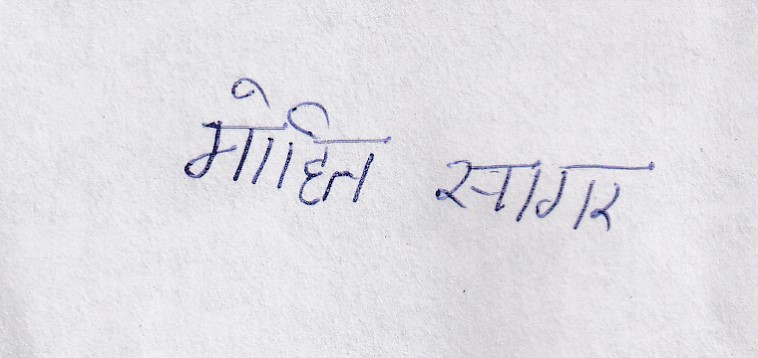 मोहित सागर